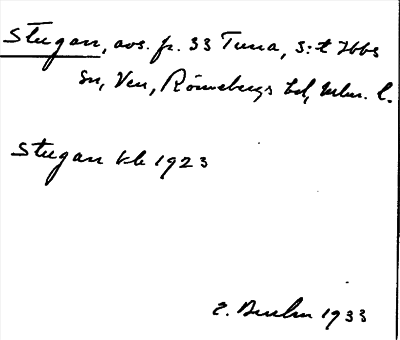 Stugan, avs. fr. 33 Tuna, S:t Ibbs
sn, Ven, Rönnebergs hd, Mlm. l.
Stugan kb 1923
E. Bruhn 1933